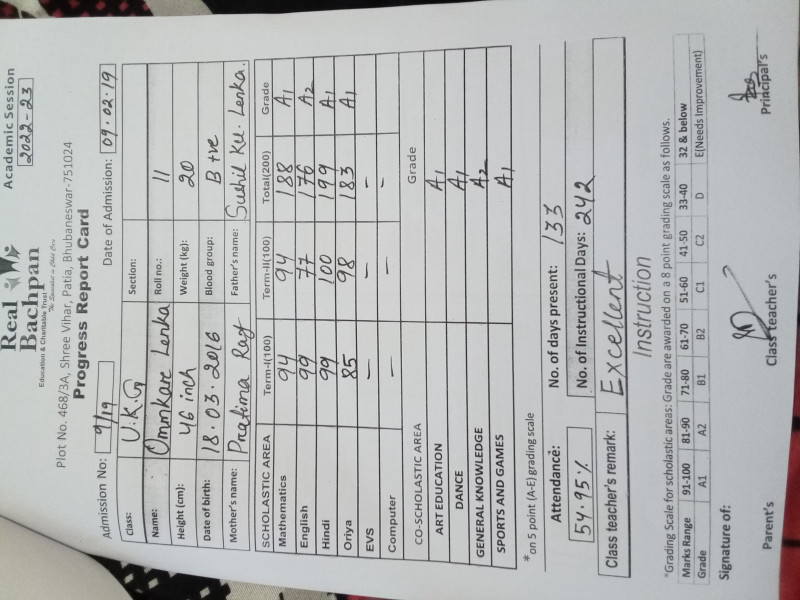 Academic Session
2022-23
Real
Bachpan
Education & Charitable Trust
Plot No. 468/3A, Shree Vihar, Patia, Bhubaneswar-751024
Progress Report Card
Admission No: 9/19 Date of Admission: 09.02.19
Class: U.K.G Section:
Name: Ommkare Lenka Roll no.: 11
Height (cm): 46 inch Weight (kg): 20
Date of birth: 18.03.2016 Blood group: B +ve
Mother's name: Pratima Ray Father's name: Sushil Ku. Lenka.
SCHOLASTIC AREA Term-I(100) Term-II(100) Total(200) Grade
Mathematics 94 94 188 A1
English 99 77 176 A2
Hindi 99 100 199 A1
Oriya 85 98 183 A1
EVS – – –
Computer – – –
CO-SCHOLASTIC AREA Grade
ART EDUCATION A1
DANCE A1
GENERAL KNOWLEDGE A2
SPORTS AND GAMES A1
*on 5 point (A-E) grading scale
Attendance: No. of days present: 133
54.95% No. of Instructional Days: 242
Class teacher's remark: Excellent
Instruction
*Grading Scale for scholastic areas: Grade are awarded on a 8 point grading scale as follows.
Marks Range 91-100 81-90 71-80 61-70 51-60 41-50 33-40 32 & below
Grade A1 A2 B1 B2 C1 C2 D E(Needs Improvement)
Signature of:
Parent's Class teacher's Principal's